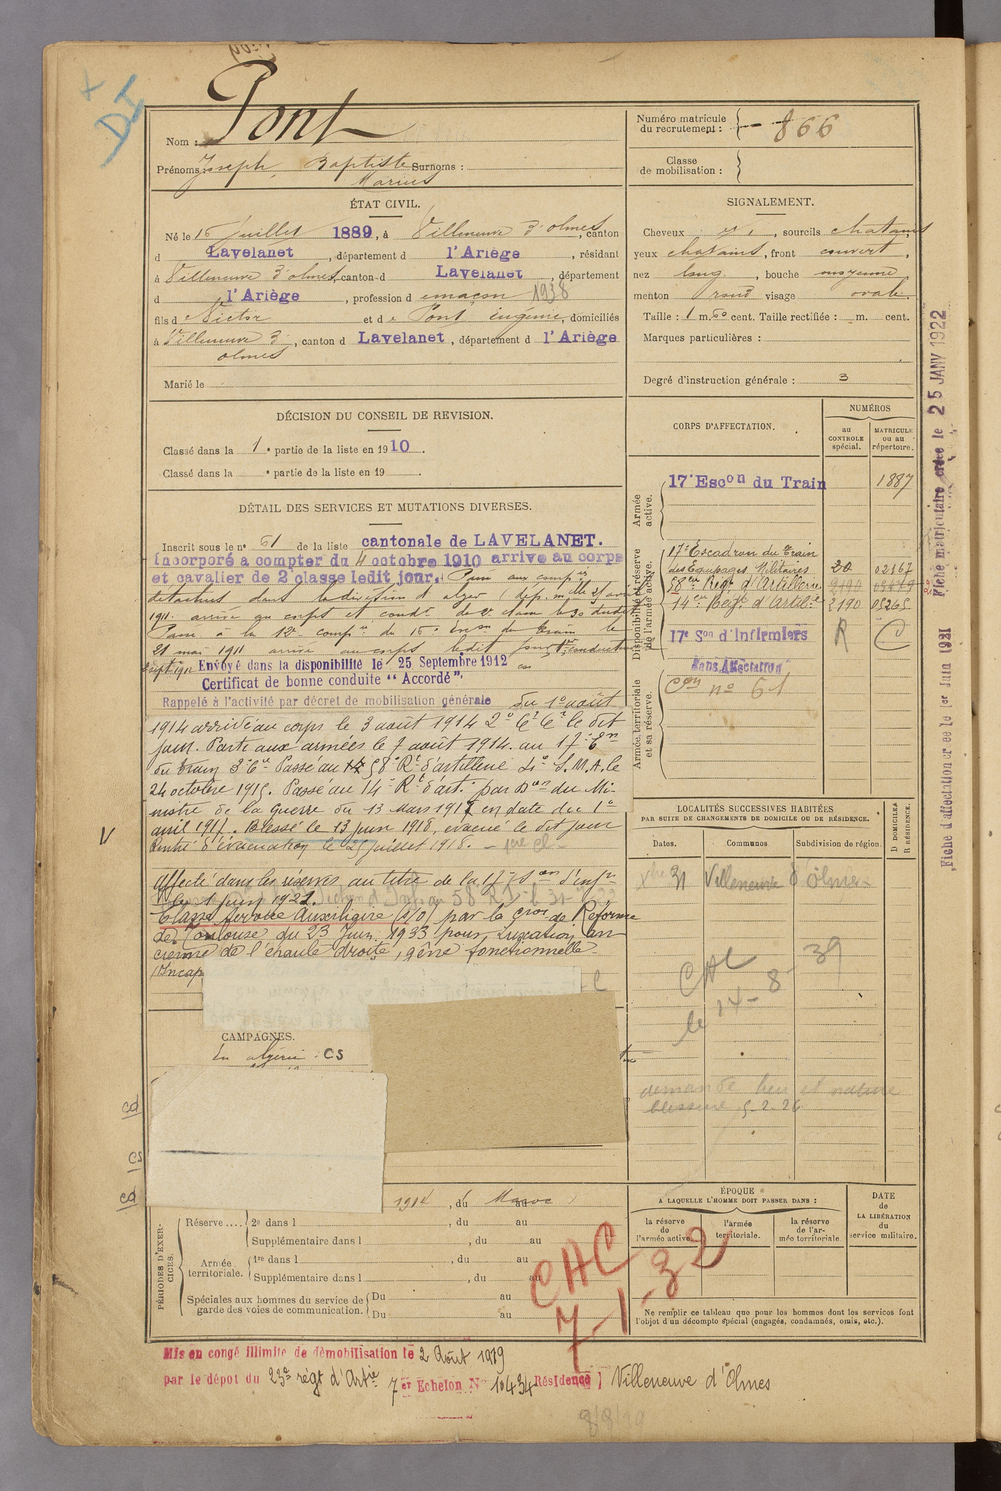 DI
Nom : Pont
Prénoms : Joseph, Baptiste Surnoms :
Marius
Numéro matricule
du recrutement : 866
Classe
de mobilisation :
ÉTAT CIVIL.
Né le 16 juillet 1889, à Villeneuve d'olmes, canton
d Lavelanet, département d l'Ariège, résidant
à Villeneuve d'olmes, canton d Lavelanet, département
d l'Ariège, profession d maçon 1938
fils d Victor et d Pont Eugénie, domiciliés
à Villeneuve d', canton d Lavelanet, département d l'Ariège
olmes
Marié le
SIGNALEMENT.
Cheveux et, sourcils chatains
yeux chatains, front couvert,
nez long, bouche moyenne
menton rond visage ovale.
Taille : 1 m. 60 cent. Taille rectifiée : m. cent.
Marques particulières :
Degré d'instruction générale : 3
DÉCISION DU CONSEIL DE REVISION.
Classé dans la 1e partie de la liste en 1910.
Classé dans la e partie de la liste en 19 .
DÉTAIL DES SERVICES ET MUTATIONS DIVERSES.
Inscrit sous le n° 61 de la liste cantonale de LAVELANET.
Incorporé a compter du 4 octobre 1910 arrivé au corps
et cavalier de 2e classe ledit jour. Passé aux compies
détachées dans la division d'alger
1911. arrivé au corps et condr de 2e classe le 30 dudit
Passé à la 12e compie du 16e Escon du Train le
21 mai 1911 arrivé au corps ledit jour, 1er conducteur
2 sept. 1911 Envoyé dans la disponibilité le 25 Septembre 1912
Certificat de bonne conduite "Accordé".
Rappelé à l'activité par décret de mobilisation générale du 1er août
1914 arrivé au corps le 3 août 1914 2e Cr Cr le dit
jour. Parti aux armées le 7 août 1914. au 17e En
du train 3e Cie Passé au 58e Rt d'artillerie 4e S.M.A. le
24 octobre 1915. Passé au 14e Rt d'art. par Don du Mi-
nistre de la Guerre du 13 Mars 1917 en date du 1er
avril 1917. Blessé le 13 juin 1918, évacué le dit jour
Rentré d'évacuation le 25 juillet 1918.
V
Affecté dans les réserves au titre de la 17e Son d'infrs
le 1 juin 1921.
Classé Service Auxiliaire (s/o) par la Cion de Réforme
de Toulouse du 23 Juin 1933 pour Luxation an-
cienne de l'épaule droite, gêne fonctionnelle
Incap
CAMPAGNES.
En algérie : CS
CORPS D'AFFECTATION.
NUMÉROS
au
CONTROLE
spécial.
MATRICULE
ou au
répertoire.
Armée
active.
17e Escon du Train 1887
Disponibilité et réserve
de l'armée active.
17e Escadron du Train
des Équipages Militaires 20 02167
58eme Regt d'Artillerie 2190
14eme Régt d'Artilie 2190 05265
17e Son d'Infirmiers R C
Sans Affectation
Armée territoriale
et sa réserve.
Con n° 61
LOCALITÉS SUCCESSIVES HABITÉES
PAR SUITE DE CHANGEMENTS DE DOMICILE OU DE RÉSIDENCE.
Dates. Communes Subdivision de région.
D DOMICILES
R RÉSIDENCE.
Xbre 31 Villeneuve d'Olmes
CAC
le 14-8-39
demande lieu et nature
blessure 5-2-26
cd
CS
cd
1914, du Maroc au
PÉRIODES D'EXER-
CICES.
Réserve .... 2e dans l , du au
Supplémentaire dans l , du au
Armée
territoriale. 1re dans l , du au
Supplémentaire dans l , du au
Spéciales aux hommes du service de
garde des voies de communication. Du au
Du au
CAC
7-1-32
ÉPOQUE
A LAQUELLE L'HOMME DOIT PASSER DANS :
la réserve
de
l'armée active.
l'armée
territoriale.
la réserve
de l'ar-
mée territoriale.
DATE
de
LA LIBÉRATION
du
service militaire.
Ne remplir ce tableau que pour les hommes dont les services font
l'objet d'un décompte spécial (engagés, condamnés, omis, etc.).
Mis en congé illimité de démobilisation le 2 Août 1919
par le dépôt du 23e régt d'Artie 7er Echelon N° 10434 Résidence Villeneuve d'Olmes
8/8/19
Fiche d'affectation créée le 1er Juin 1921
Fiche matriculaire créée le 25 JANV 1922